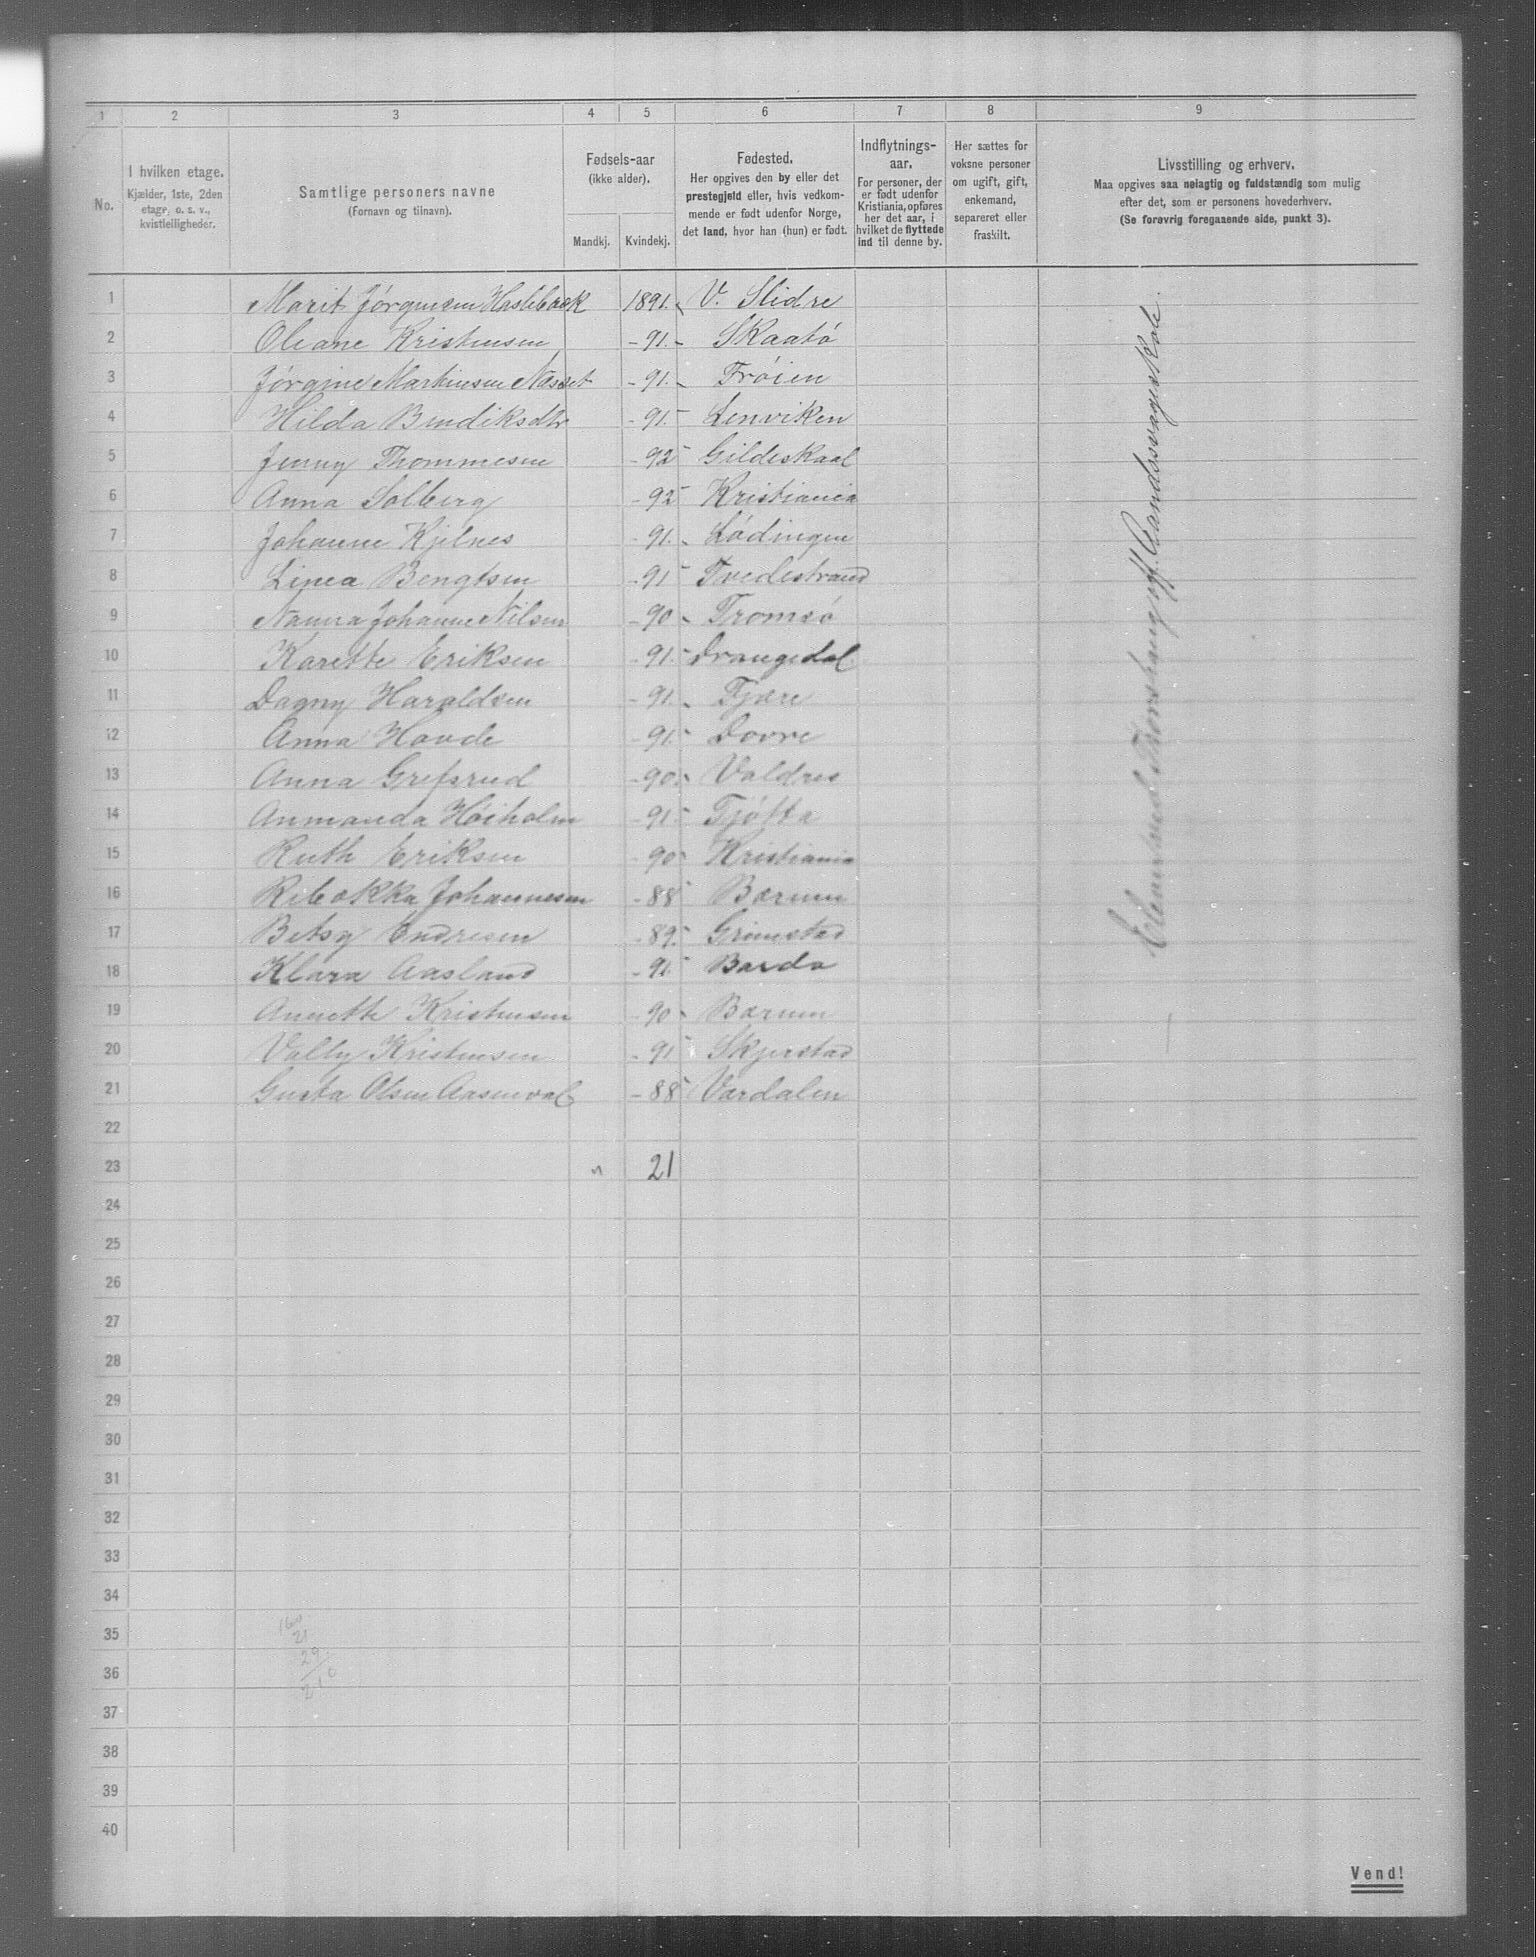 1 2 3 4 5 6 7 8 9
No.
I hvilken etage.
Kjælder, 1ste, 2den
etage, o. s. v.,
kvistleiligheder.
Samtlige personers navne
(Fornavn og tilnavn).
Fødsels-aar
(ikke alder).
Mandkj. Kvindekj.
Fødested.
Her opgives den by eller det
prestegjeld eller, hvis vedkom-
mende er født udenfor Norge,
det land, hvor han (hun) er født.
Indflytnings-
aar.
For personer, der
er født udenfor
Kristiania, opføres
her det aar, i
hvilket de flyttede
ind til denne by.
Her sættes for
voksne personer
om ugift, gift,
enkemand,
separeret eller
fraskilt.
Livsstilling og erhverv.
Maa opgives saa nøiagtig og fuldstændig som mulig
efter det, som er personens hovederhverv.
(Se forøvrig foregaaende side, punkt 3).
1 Marit Jörgensen Haslebræk 1891. V. Slidre
2 Oleane Kristensen - 91. - Skaatö
3 Jörgine Martinsen Næsset - 91. - Tröien
4 Hilda Bendiksdtr - 91. - Lenviken
5 Jenny Thommesen - 92 - Gildeskaal
6 Anna Solberg - 92 - Kristiania
7 Johanne Kjelnes - 91. - Lödingen
8 Linea Bengtsen - 91 - Tvedestrand
9 Nanna Johanne Nilsen - 90 - Tromsö
10 Karette Eriksen - 91. - Drangedal
11 Dagny Haraldsen - 91. - Fjære
12 Anna Hovde - 91. - Dovre
13 Anna Grefsrud - 90. - Valdres
14 Anmanda Höiholm - 91. - Tjötta
15 Ruth Eriksen - 90 - Kristiania
16 Rebækka Johannesen - 88 - Bærum
17 Betsy Endresen - 89. - Grimstad
18 Klara Aasland - 91. - Bardo
19 Annette Kristensen - 90 - Bærum
20 Valby Kristensen - 91 - Skjerstad
21 Gusta Olsen Aasenval - 88 - Værdalen
22
23 " 21
24
25
26
27
28
29
30
31
32
33
34
35
36
37
38
39
40
21
29
Elev ved off. Aandssvageskole.
Vend!